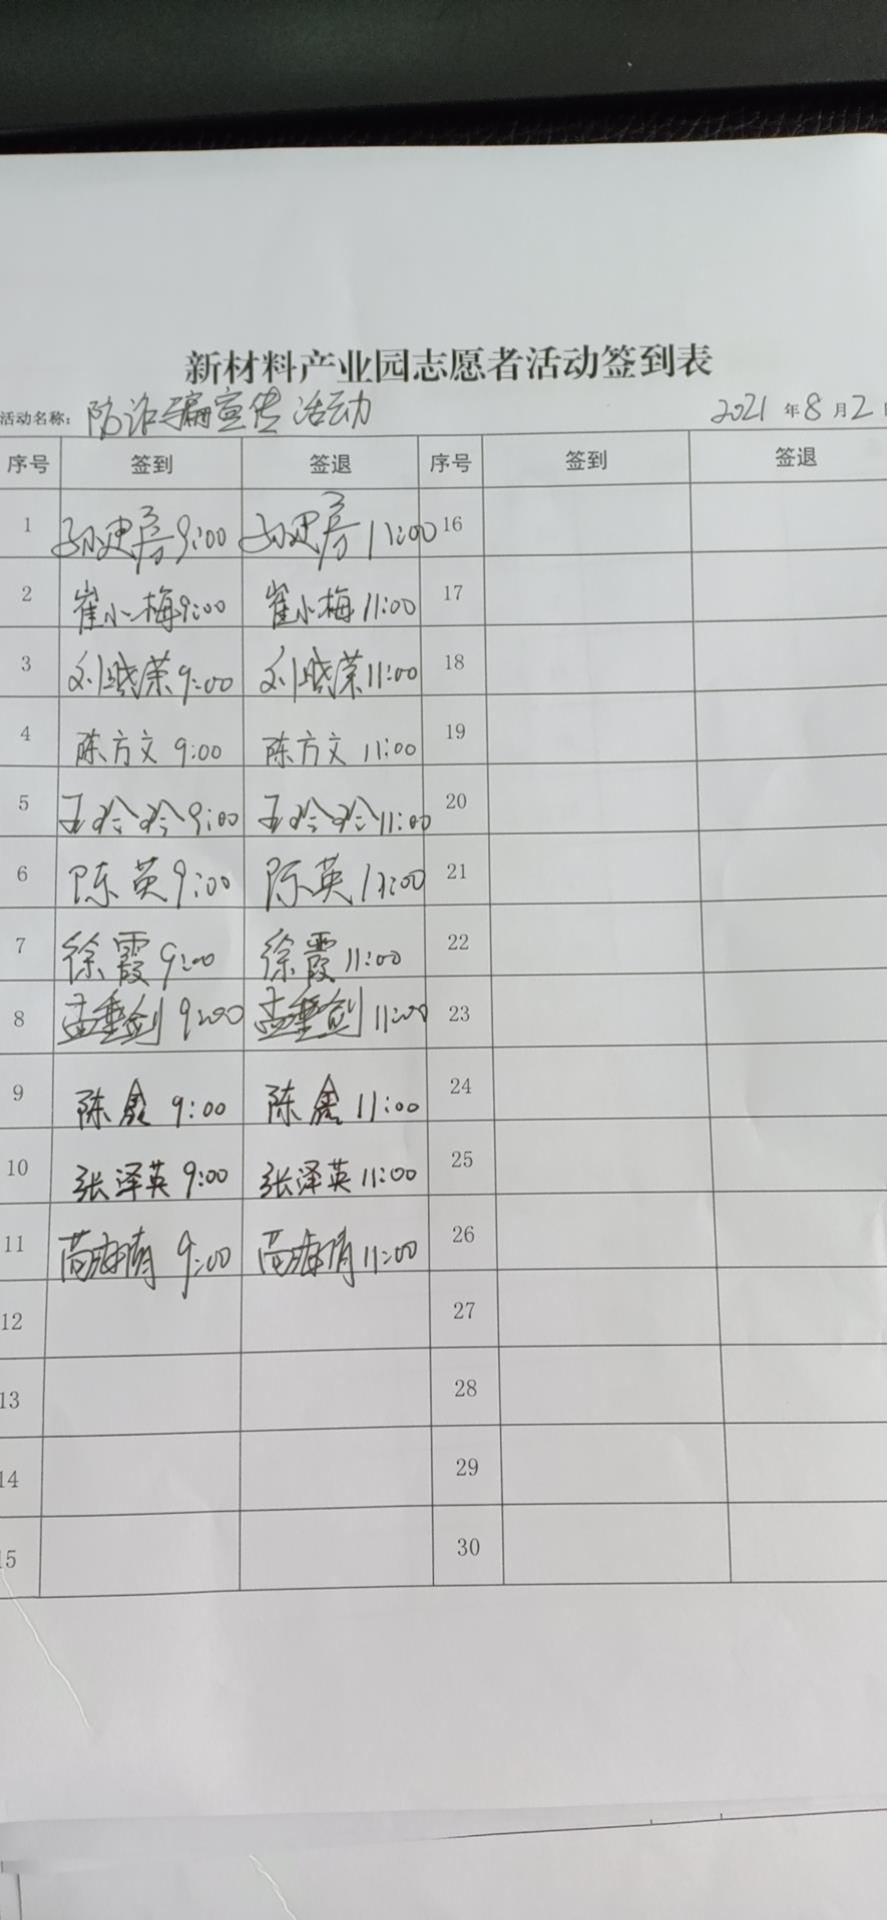 新材料产业园志愿者活动签到表
活动名称: 防诈骗宣传活动 2021 年 8 月 2
序号 签到 签退 序号 签到 签退
1 孙建房 9:00 孙建房 11:00 16
2 崔小梅 9:00 崔小梅 11:00 17
3 刘晓荣 9:00 刘晓荣 11:00 18
4 陈方文 9:00 陈方文 11:00 19
5 王玲玲 9:00 王玲玲 11:00 20
6 陈英 9:00 陈英 11:00 21
7 徐霞 9:00 徐霞 11:00 22
8 9:00 11:00 23
9 陈鑫 9:00 陈鑫 11:00 24
10 张泽英 9:00 张泽英 11:00 25
11 9:00 11:00 26
12 27
13 28
14 29
15 30